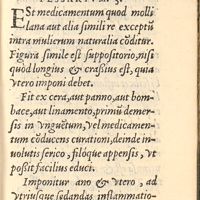 Est medicamentum quod molli
lana aut alia simili re exceptũ
intra mulierum naturalia cõditur.
Figura simile est suppositorio, nisi
quòd longius & craßius est, quia
vtero imponi debet.
Fit ex cera, aut panno, aut bom-
bace, aut linamento, primũ demer-
sis in vnguẽtum, vel medicamen-
tum cõducens curationi, deinde in-
uolutis serico, filóque appensis, vt
poßit facilius educi.
Imponitur ano & vtero, ad
vtriusque sedandas inflammatio-